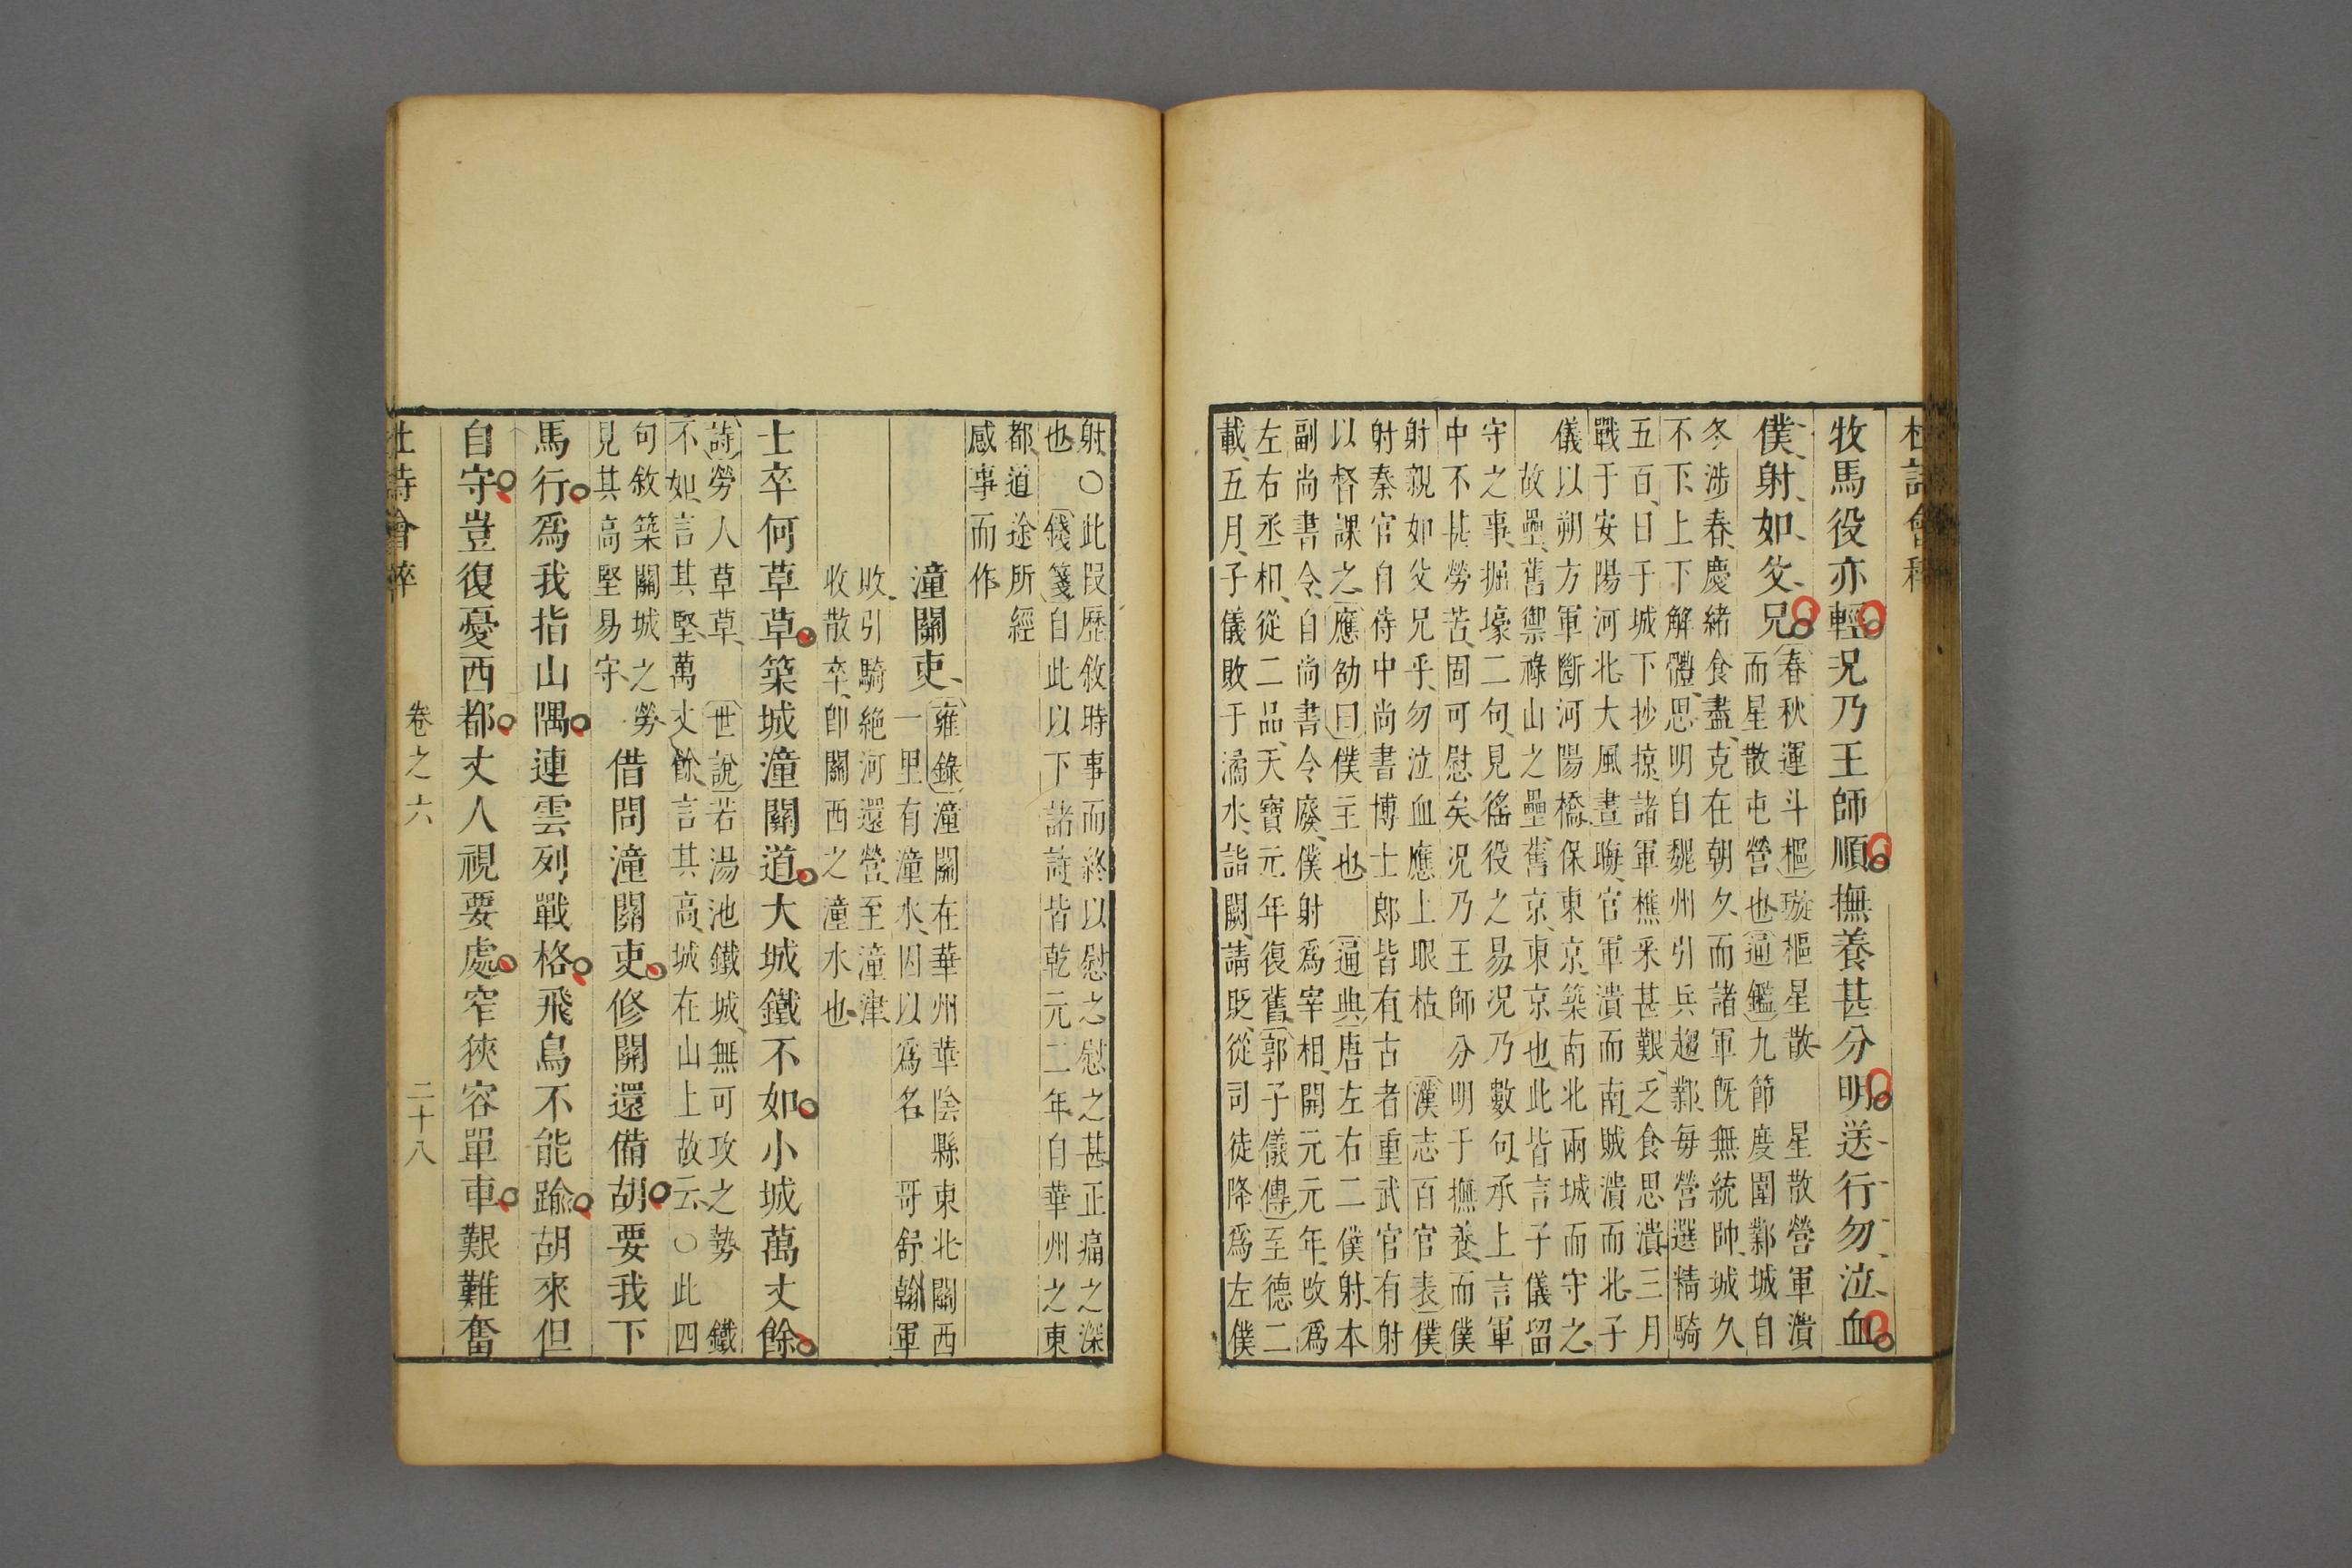 杜詩會稡
牧馬役亦輕況乃王師順撫養甚分明送行勿泣血
僕射如父兄
春秋運斗樞璇樞星散 星散營軍潰
而星散屯營也通鑑九節度圍鄴城自
冬涉春慶緒食盡克在朝夕而諸軍既無統帥城久
不下上下解體思明自魏州引兵趨鄴每營選精騎
五百日于城下抄掠諸軍樵采甚艱乏食思潰三月
戰于安陽河北大風晝晦官軍潰而南賊潰而北子
儀以朔方軍斷河陽橋保東京築南北兩城而守之
故壘舊禦祿山之壘舊京東京也此皆言子儀留
守之事掘壕二句見徭役之易況乃數句承上言軍
中不甚勞苦固可慰矣況乃王師分明于撫養而僕
射親如父兄乎勿泣血應上眼枯 漢志百官表僕
射秦官自侍中尚書博士郎皆有古者重武官有射
以督課之應劭曰僕主也通典唐左右二僕射本
副尚書令自尚書令廢僕射為宰相開元元年改為
左右丞相從二品天寶元年復舊郭子儀傳至德二
載五月子儀敗于潏水詣闕請貶從司徒降為左僕
射○此叚歷敘時事而終以慰之慰之甚正痛之深
也錢箋自此以下諸詩皆乾元二年自華州之東
都道途所經
感事而作
潼關吏
雍錄潼關在華州華陰縣東北關西
一里有潼水因以為名 哥舒翰軍
敗引騎絕河還營至潼津
收散卒即關西之潼水也
士卒何草草築城潼關道大城鐵不如小城萬丈餘
詩勞人草草 世說若湯池鐵城無可攻之勢 鐵
不如言其堅萬丈餘言其高城在山上故云○此四
句敘築關城之勞
見其高堅易守
借問潼關吏修關還備胡要我下
馬行為我指山隅連雲列戰格飛鳥不能踰胡來但
自守豈復憂西都丈人視要處窄狹容單車艱難奮
杜詩會稡 卷之六 二十八